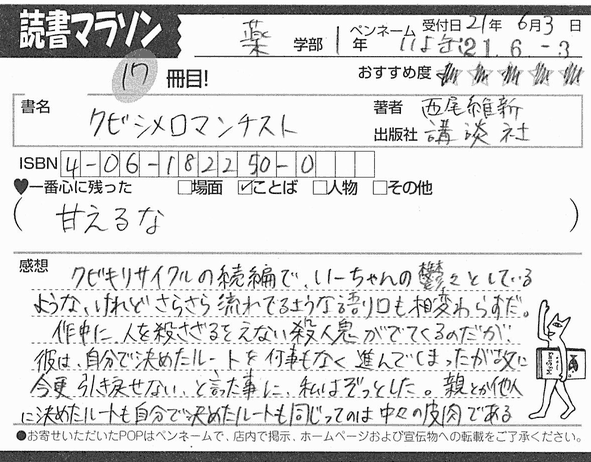 読書マラソン
薬 学部 1 年 ペンネーム いよ 受付日 21年 6月 3日
21.6.-3
17 冊目! おすすめ度 ★★★★★
書名 クビシメロマンチスト
著者 西尾維新
出版社 講談社
ISBN 4-06-182250-0
♥一番心に残った □場面 ☑ことば □人物 □その他
(甘えるな)
感想
クビキリサイクルの続編で、いーちゃんの鬱々としている
ような、けれどさらさら流れてるような語り口も相変わらずだ。
作中に、人を殺さざるをえない殺人鬼がでてくるのだが、
彼は、自分で決めたルートを何事もなく進んでしまったが故に
今更引き戻せない、と言った事に、私はぞっとした。親とか他人
に決めたルートも自分で決めたルートも同じってのは中々の皮肉である
●お寄せいただいたPOPはペンネームで、店内で掲示、ホームページおよび宣伝物への転載をご了承ください。